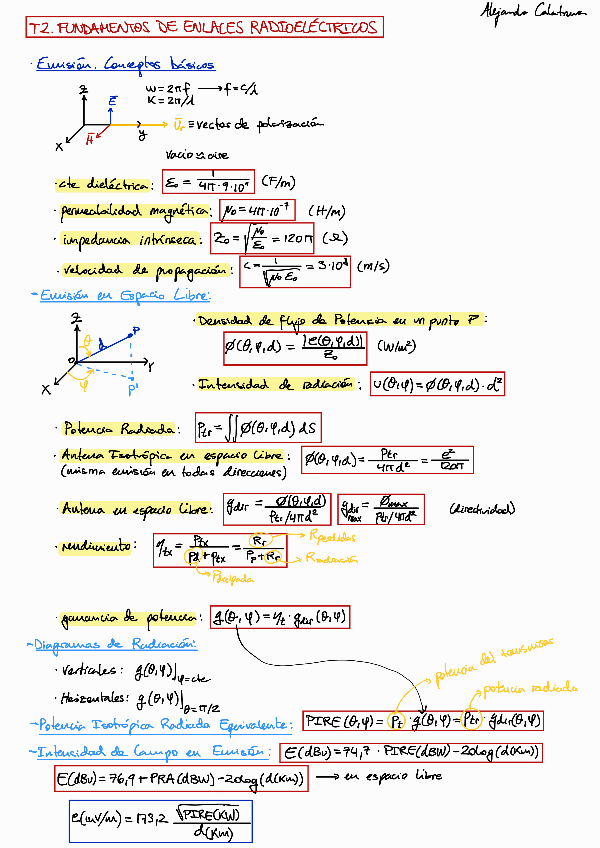 Alejandro Calatrava
T2. FUNDAMENTOS DE ENLACES RADIOELÉCTRICOS
· Emisión. Conceptos básicos
z E y x H
W = 2πf → f = c/λ
K = 2π/λ
≡ vector de polarización
vacío ≈ aire
· cte dieléctrica: ε₀ = 1/(4π·9·10⁹) (F/m)
· permeabilidad magnética: μ₀ = 4π·10⁻⁷ (H/m)
· impedancia intrínseca: Z₀ = √(μ₀/ε₀) = 120π (Ω)
· velocidad de propagación: c = 1/√(μ₀ε₀) = 3·10⁸ (m/s)
- Emisión en Espacio Libre:
z θ d P O Y X φ P'
· Densidad de flujo de Potencia en un punto P:
Ø(θ,φ,d) = |e(θ,φ,d)|/Z₀ (W/m²)
· Intensidad de radiación: U(θ,φ) = Ø(θ,φ,d)·d²
· Potencia Radiada: Ptr = ∬ Ø(θ,φ,d) dS
· Antena Isotrópica en espacio libre: Ø(θ,φ,d) = Ptr/4πd² = e²/120π
(misma emisión en todas direcciones)
· Antena en espacio libre: gdir = Ø(θ,φ,d)/(Ptr/4πd²) gdir max = Ømax/(Ptr/4πd²) (directividad)
· rendimiento: ηtx = Ptx/(Pd+Ptx) = Rr/(Pp+Rr)
Rperdidas
Rradiación
Pdisipada
· ganancia de potencia: g(θ,φ) = ηt · gdir(θ,φ)
- Diagramas de Radiación:
· Verticales: g(θ,φ)|φ=cte
· Horizontales: g(θ,φ)|θ=π/2
potencia del transmisor
potencia radiada
- Potencia Isotrópica Radiada Equivalente: PIRE(θ,φ) = Pt · g(θ,φ) = Ptr · gdir(θ,φ)
- Intensidad de Campo en Emisión: E(dBu) = 74,7 · PIRE(dBW) - 20log(d(Km))
E(dBu) = 76,9 + PRA(dBW) - 20log(d(Km)) → en espacio libre
e(mV/m) = 173,2 √PIRE(KW)/d(Km)